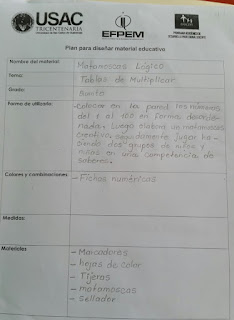 USAC
TRICENTENARIA
Universidad de San Carlos de Guatemala
EFPEM
Plan para diseñar material educativo
Nombre del material: Matamoscas Lógico
Tema: Tablas de Multiplicar
Grado: Quinto
Forma de utilizarlo: -Colocar en la pared los números
del 1 al 100 en forma desorde-
nada. Luego elabora un matamoscas
creativo, para jugar ha-
ciendo dos grupos de niños y
niñas en una competencia de
saberes.
Colores y combinaciones: -Fichas numéricas
Medidas:
Materiales: -Marcadores
-hojas de color
-Tijeras
-matamoscas
-sellador